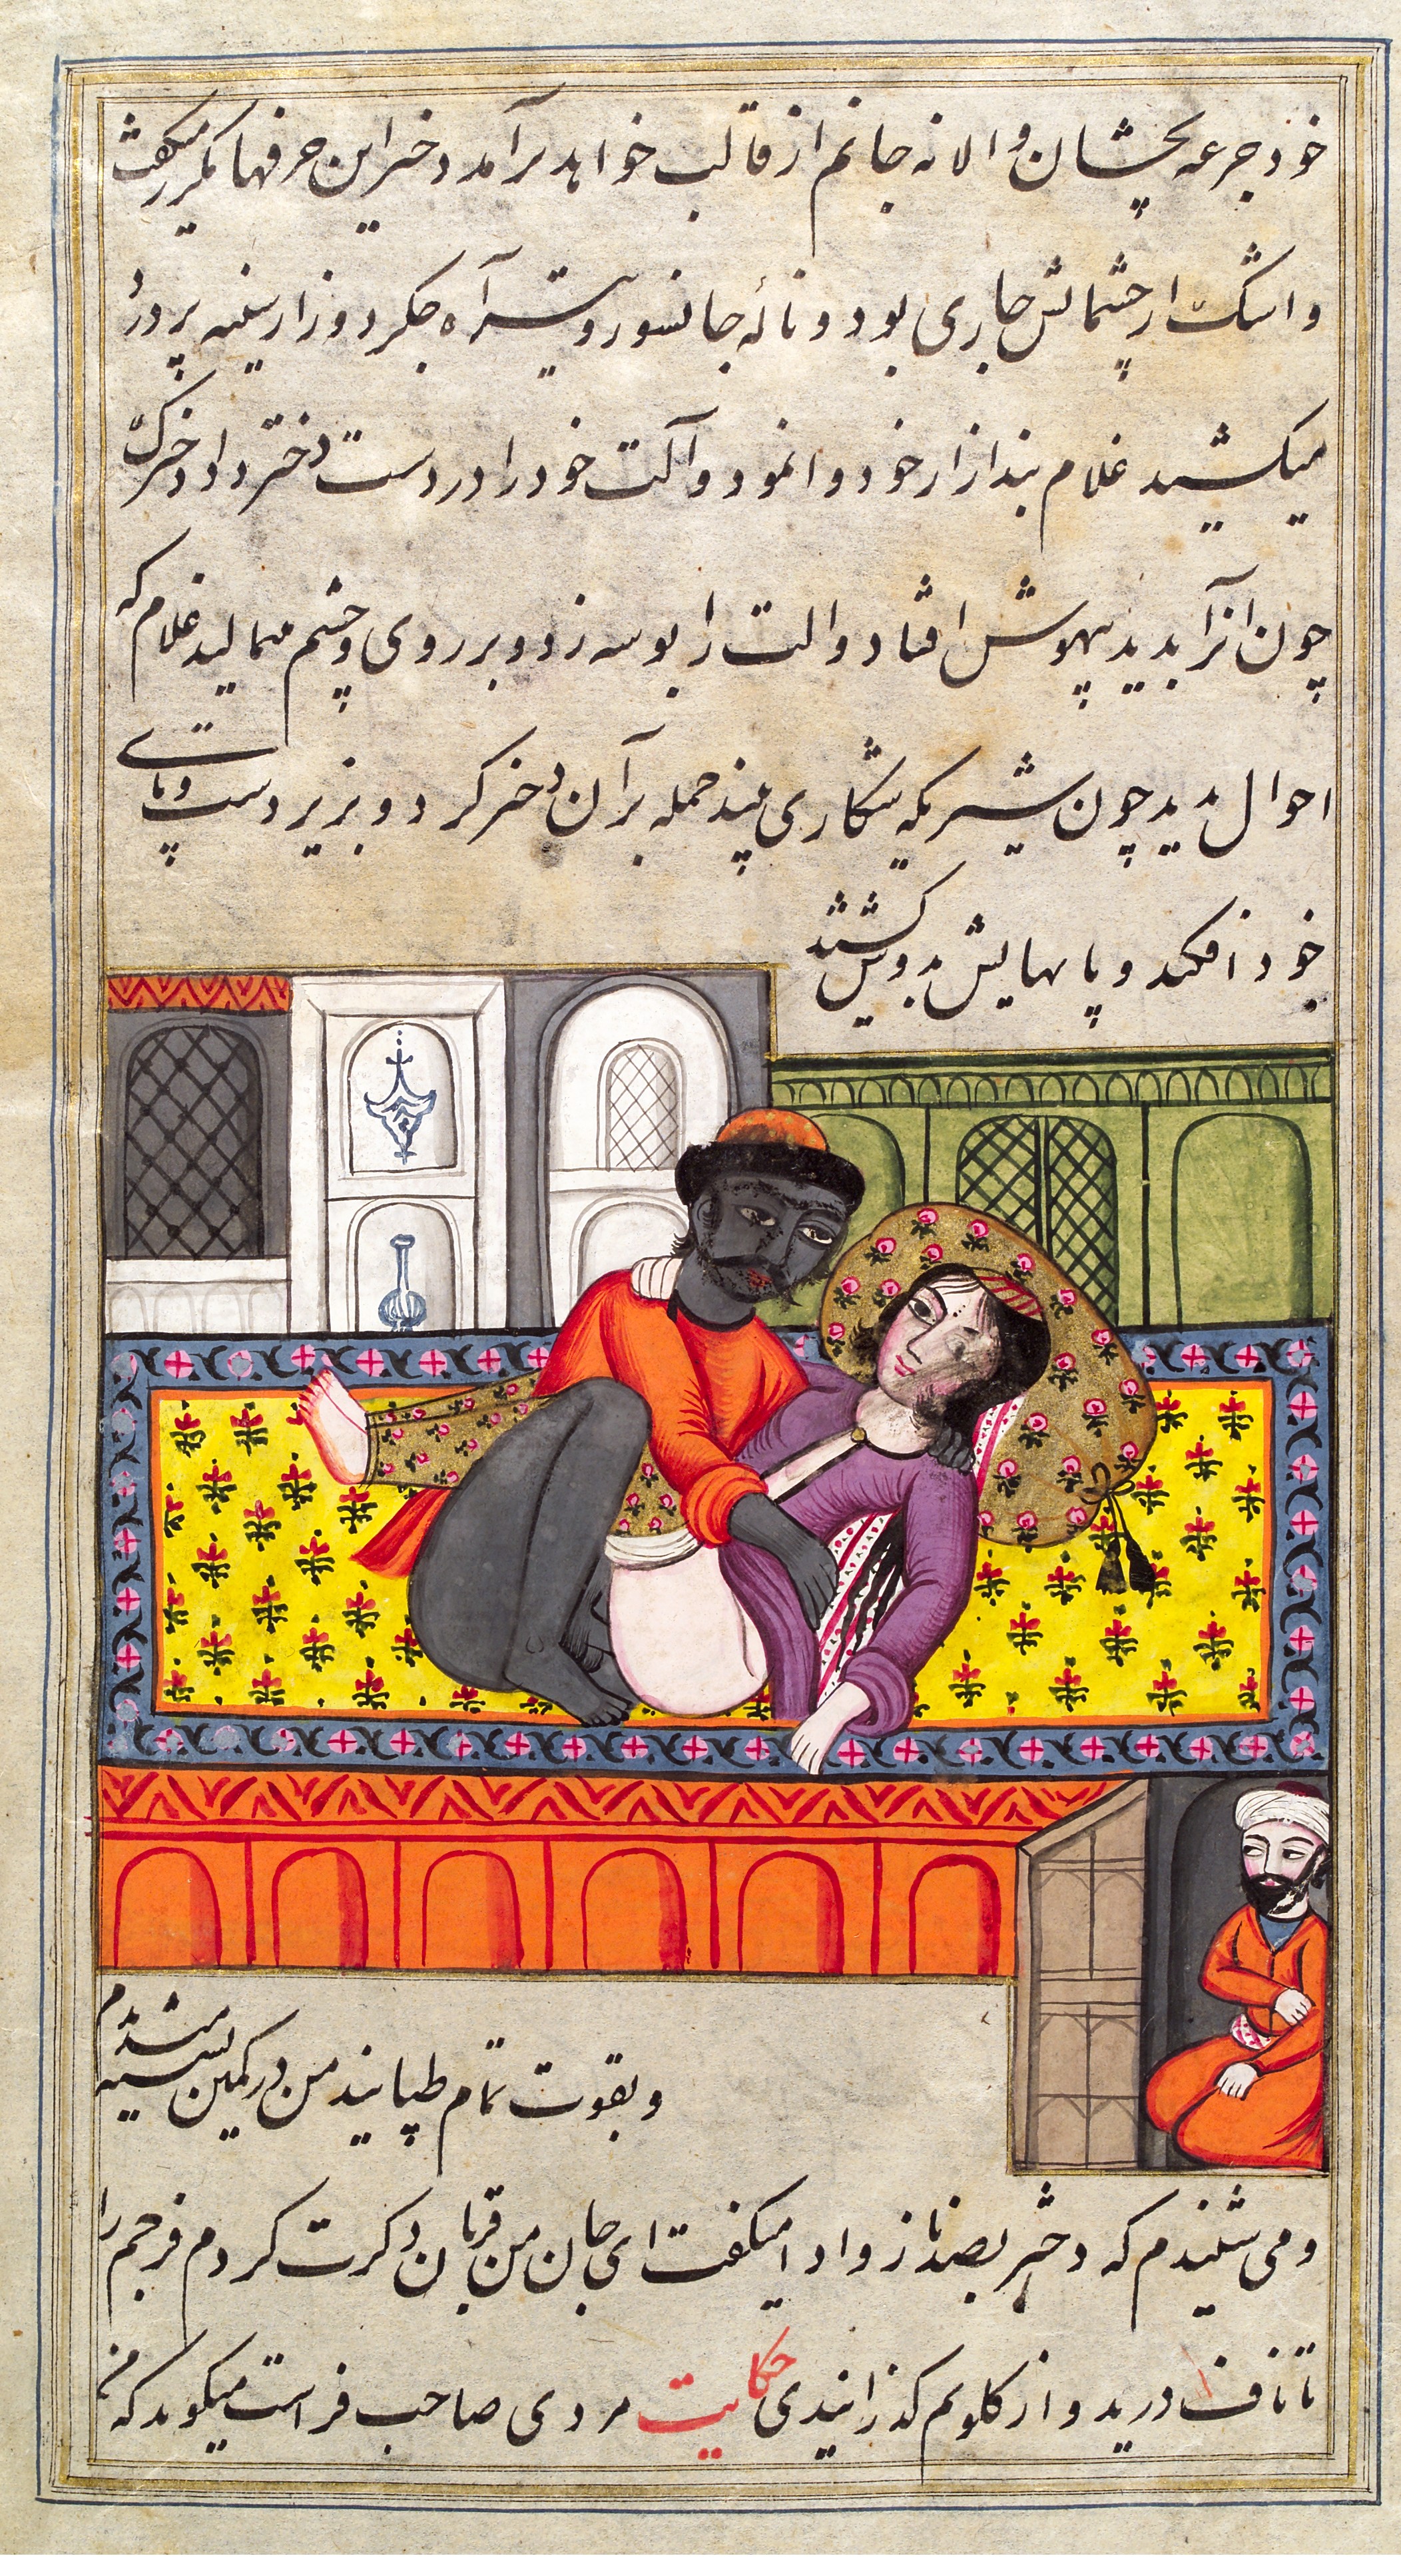 خود جرعه بچشان والا نه جانم از قالب خواهد برآمد دختر این حرفها مکرر میگفت
و اشک از چشمانش جاری بود و نالهٔ جانسوز و تیر آه جگردوز از سینه پر درد
میکشید غلام بند ازار خود وا نمود و آلت خود را در دست دختر داد دخترک
چون انرا بدید بیهوش افتاد و الت را بوسه زد و بر روی و چشم میمالید غلام که
احوال بدید چون شیر یکه شکاری بیند حمله بر آن دختر کرد و بزیر دست و پای
خود افکند و پاهایش بدوش کشید
و بقوت تمام طپانید من در کمین نشسته
میدیدم
و می شنیدم که دختر بصد ناز و ادا میگفت ای جان من قربان ذکرت کردم فرجم را
تا ناف درید و از گلویم گذرانیدی حکایت مردی صاحب فراست میگوید که